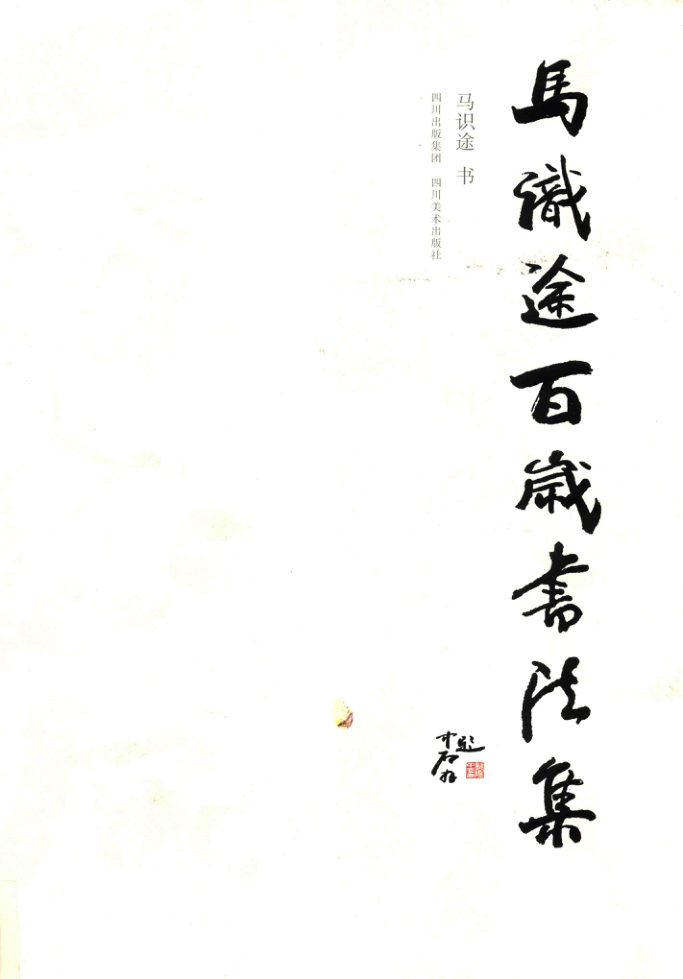 馬識途百歲書法集
马识途 书
四川出版集团 四川美术出版社